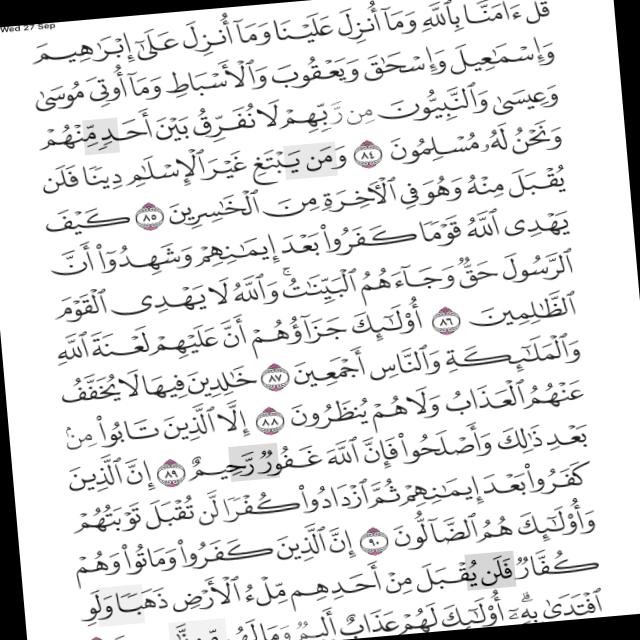 Wed 27 Sep
قُلْ ءَامَنَّا بِٱللَّهِ وَمَآ أُنزِلَ عَلَيْنَا وَمَآ أُنزِلَ عَلَىٰٓ إِبْرَٰهِيمَ
وَإِسْمَٰعِيلَ وَإِسْحَٰقَ وَيَعْقُوبَ وَٱلْأَسْبَاطِ وَمَآ أُوتِىَ مُوسَىٰ
وَعِيسَىٰ وَٱلنَّبِيُّونَ مِن رَّبِّهِمْ لَا نُفَرِّقُ بَيْنَ أَحَدٍ مِّنْهُمْ
وَنَحْنُ لَهُۥ مُسْلِمُونَ ٨٤ وَمَن يَبْتَغِ غَيْرَ ٱلْإِسْلَٰمِ دِينًا فَلَن
يُقْبَلَ مِنْهُ وَهُوَ فِى ٱلْأَخِرَةِ مِنَ ٱلْخَٰسِرِينَ ٨٥ كَيْفَ
يَهْدِى ٱللَّهُ قَوْمًا كَفَرُوا۟ بَعْدَ إِيمَٰنِهِمْ وَشَهِدُوٓا۟ أَنَّ
ٱلرَّسُولَ حَقٌّ وَجَآءَهُمُ ٱلْبَيِّنَٰتُ ۚ وَٱللَّهُ لَا يَهْدِى ٱلْقَوْمَ
ٱلظَّٰلِمِينَ ٨٦ أُو۟لَٰٓئِكَ جَزَآؤُهُمْ أَنَّ عَلَيْهِمْ لَعْنَةَ ٱللَّهِ
وَٱلْمَلَٰٓئِكَةِ وَٱلنَّاسِ أَجْمَعِينَ ٨٧ خَٰلِدِينَ فِيهَا لَا يُخَفَّفُ
عَنْهُمُ ٱلْعَذَابُ وَلَا هُمْ يُنظَرُونَ ٨٨ إِلَّا ٱلَّذِينَ تَابُوا۟ مِنۢ
بَعْدِ ذَٰلِكَ وَأَصْلَحُوا۟ فَإِنَّ ٱللَّهَ غَفُورٌ رَّحِيمٌ ٨٩ إِنَّ ٱلَّذِينَ
كَفَرُوا۟ بَعْدَ إِيمَٰنِهِمْ ثُمَّ ٱزْدَادُوا۟ كُفْرًا لَّن تُقْبَلَ تَوْبَتُهُمْ
وَأُو۟لَٰٓئِكَ هُمُ ٱلضَّآلُّونَ ٩٠ إِنَّ ٱلَّذِينَ كَفَرُوا۟ وَمَاتُوا۟ وَهُمْ
كُفَّارٌ فَلَن يُقْبَلَ مِنْ أَحَدِهِم مِّلْءُ ٱلْأَرْضِ ذَهَبًا وَلَوِ
ٱفْتَدَىٰ بِهِۦٓ ۗ أُو۟لَٰٓئِكَ لَهُمْ عَذَابٌ أَلِيمٌ وَمَا لَهُم